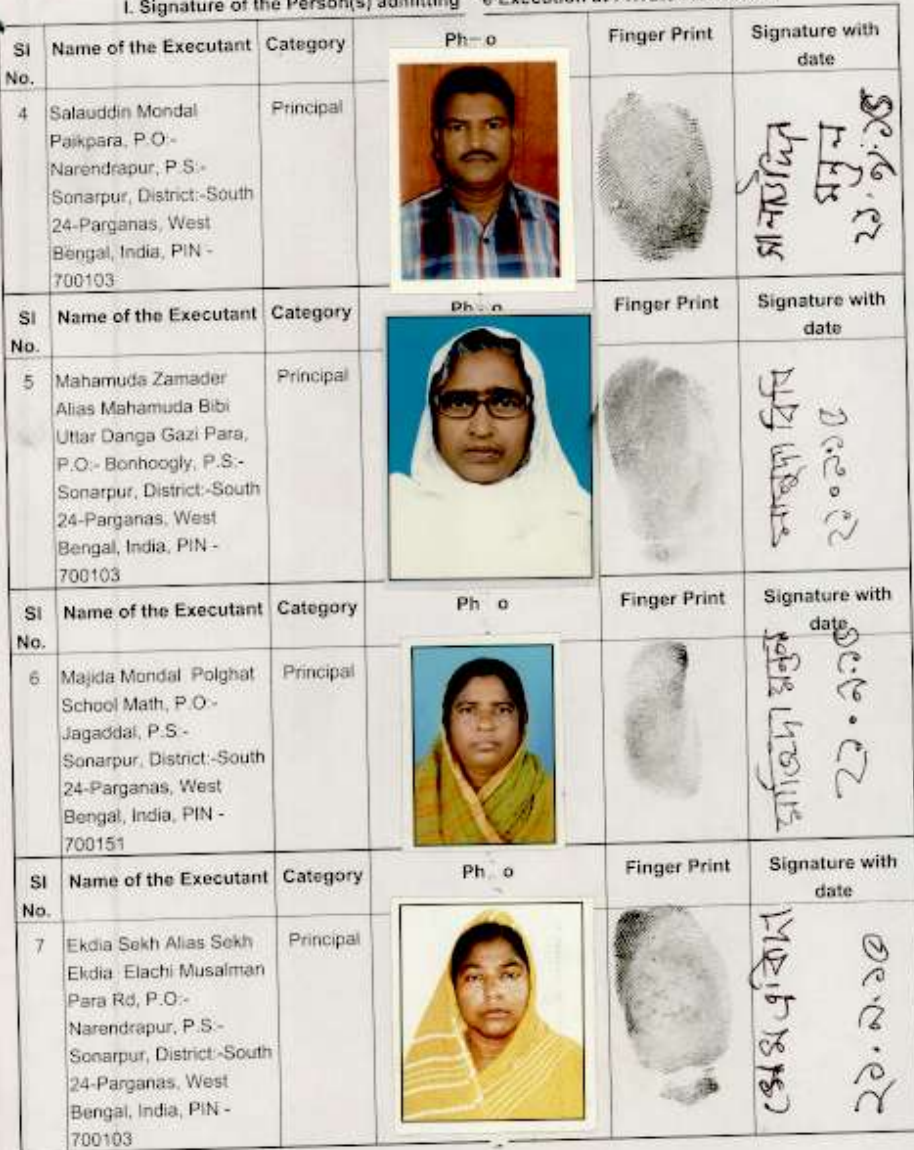 I. Signature of the Person(s) admitting
Sl No. Name of the Executant Category Finger Print Signature with date
4 Salauddin Mondal Principal
Paikpara, P.O:-
Narendrapur, P.S:-
Sonarpur, District:-South
24-Parganas, West
Bengal, India, PIN -
700103
Sl No. Name of the Executant Category Finger Print Signature with date
5 Mahamuda Zamader Principal
Alias Mahamuda Bibi
Uttar Danga Gazi Para,
P.O:- Bonhoogly, P.S:-
Sonarpur, District:-South
24-Parganas, West
Bengal, India, PIN -
700103
Sl No. Name of the Executant Category Finger Print Signature with date
6 Majida Mondal Polghat Principal
School Math, P.O:-
Jagaddal, P.S:-
Sonarpur, District:-South
24-Parganas, West
Bengal, India, PIN -
700151
Sl No. Name of the Executant Category Finger Print Signature with date
7 Ekdia Sekh Alias Sekh Principal
Ekdia Elachi Musalman
Para Rd, P.O:-
Narendrapur, P.S:-
Sonarpur, District:-South
24-Parganas, West
Bengal, India, PIN -
700103